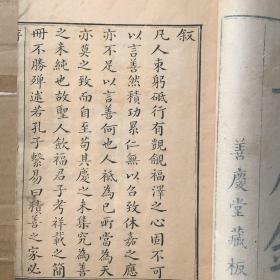 叙
凡人束躬砥行有觊觎福澤之心固不可
以言善然積功累仁無以召致休嘉之應
亦不足以言善何也人祗為已所當為天
亦莫之致而自至苟其慶之未集究為善
之未純也故聖人斂福君子考祥載之簡
冊不勝殫述若孔子繫易曰積善之家必
善慶堂藏板